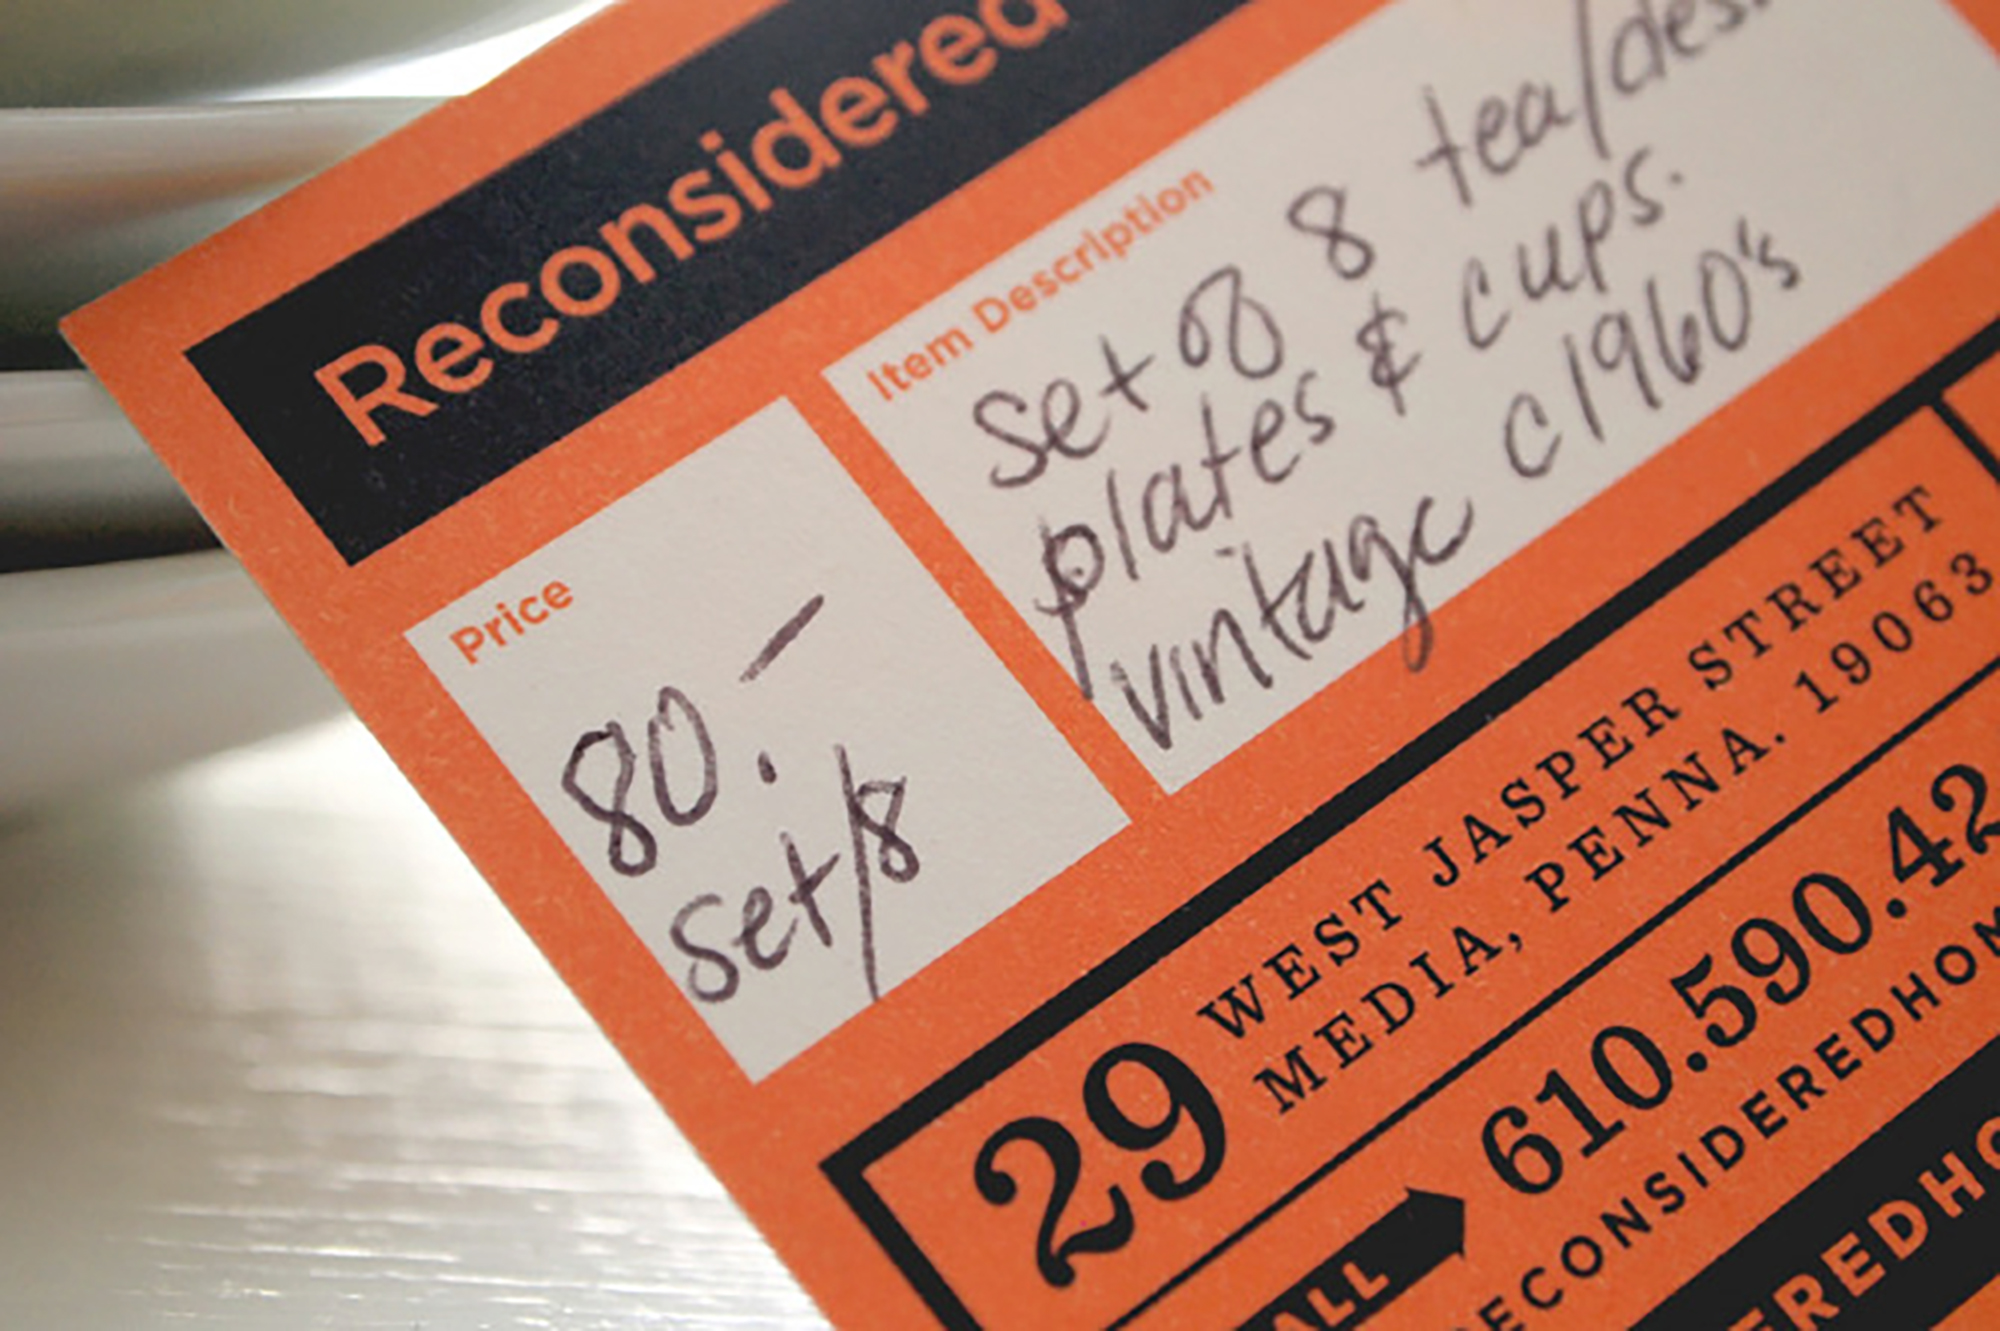 Reconsidered
Item Description
set of 8 tea/des
plates & cups.
vintage c1960's
Price
80.–
set/8
29 WEST JASPER STREET
MEDIA, PENNA. 19063
ALL 610.590.42
ECONSIDEREDHOM
EREDHO